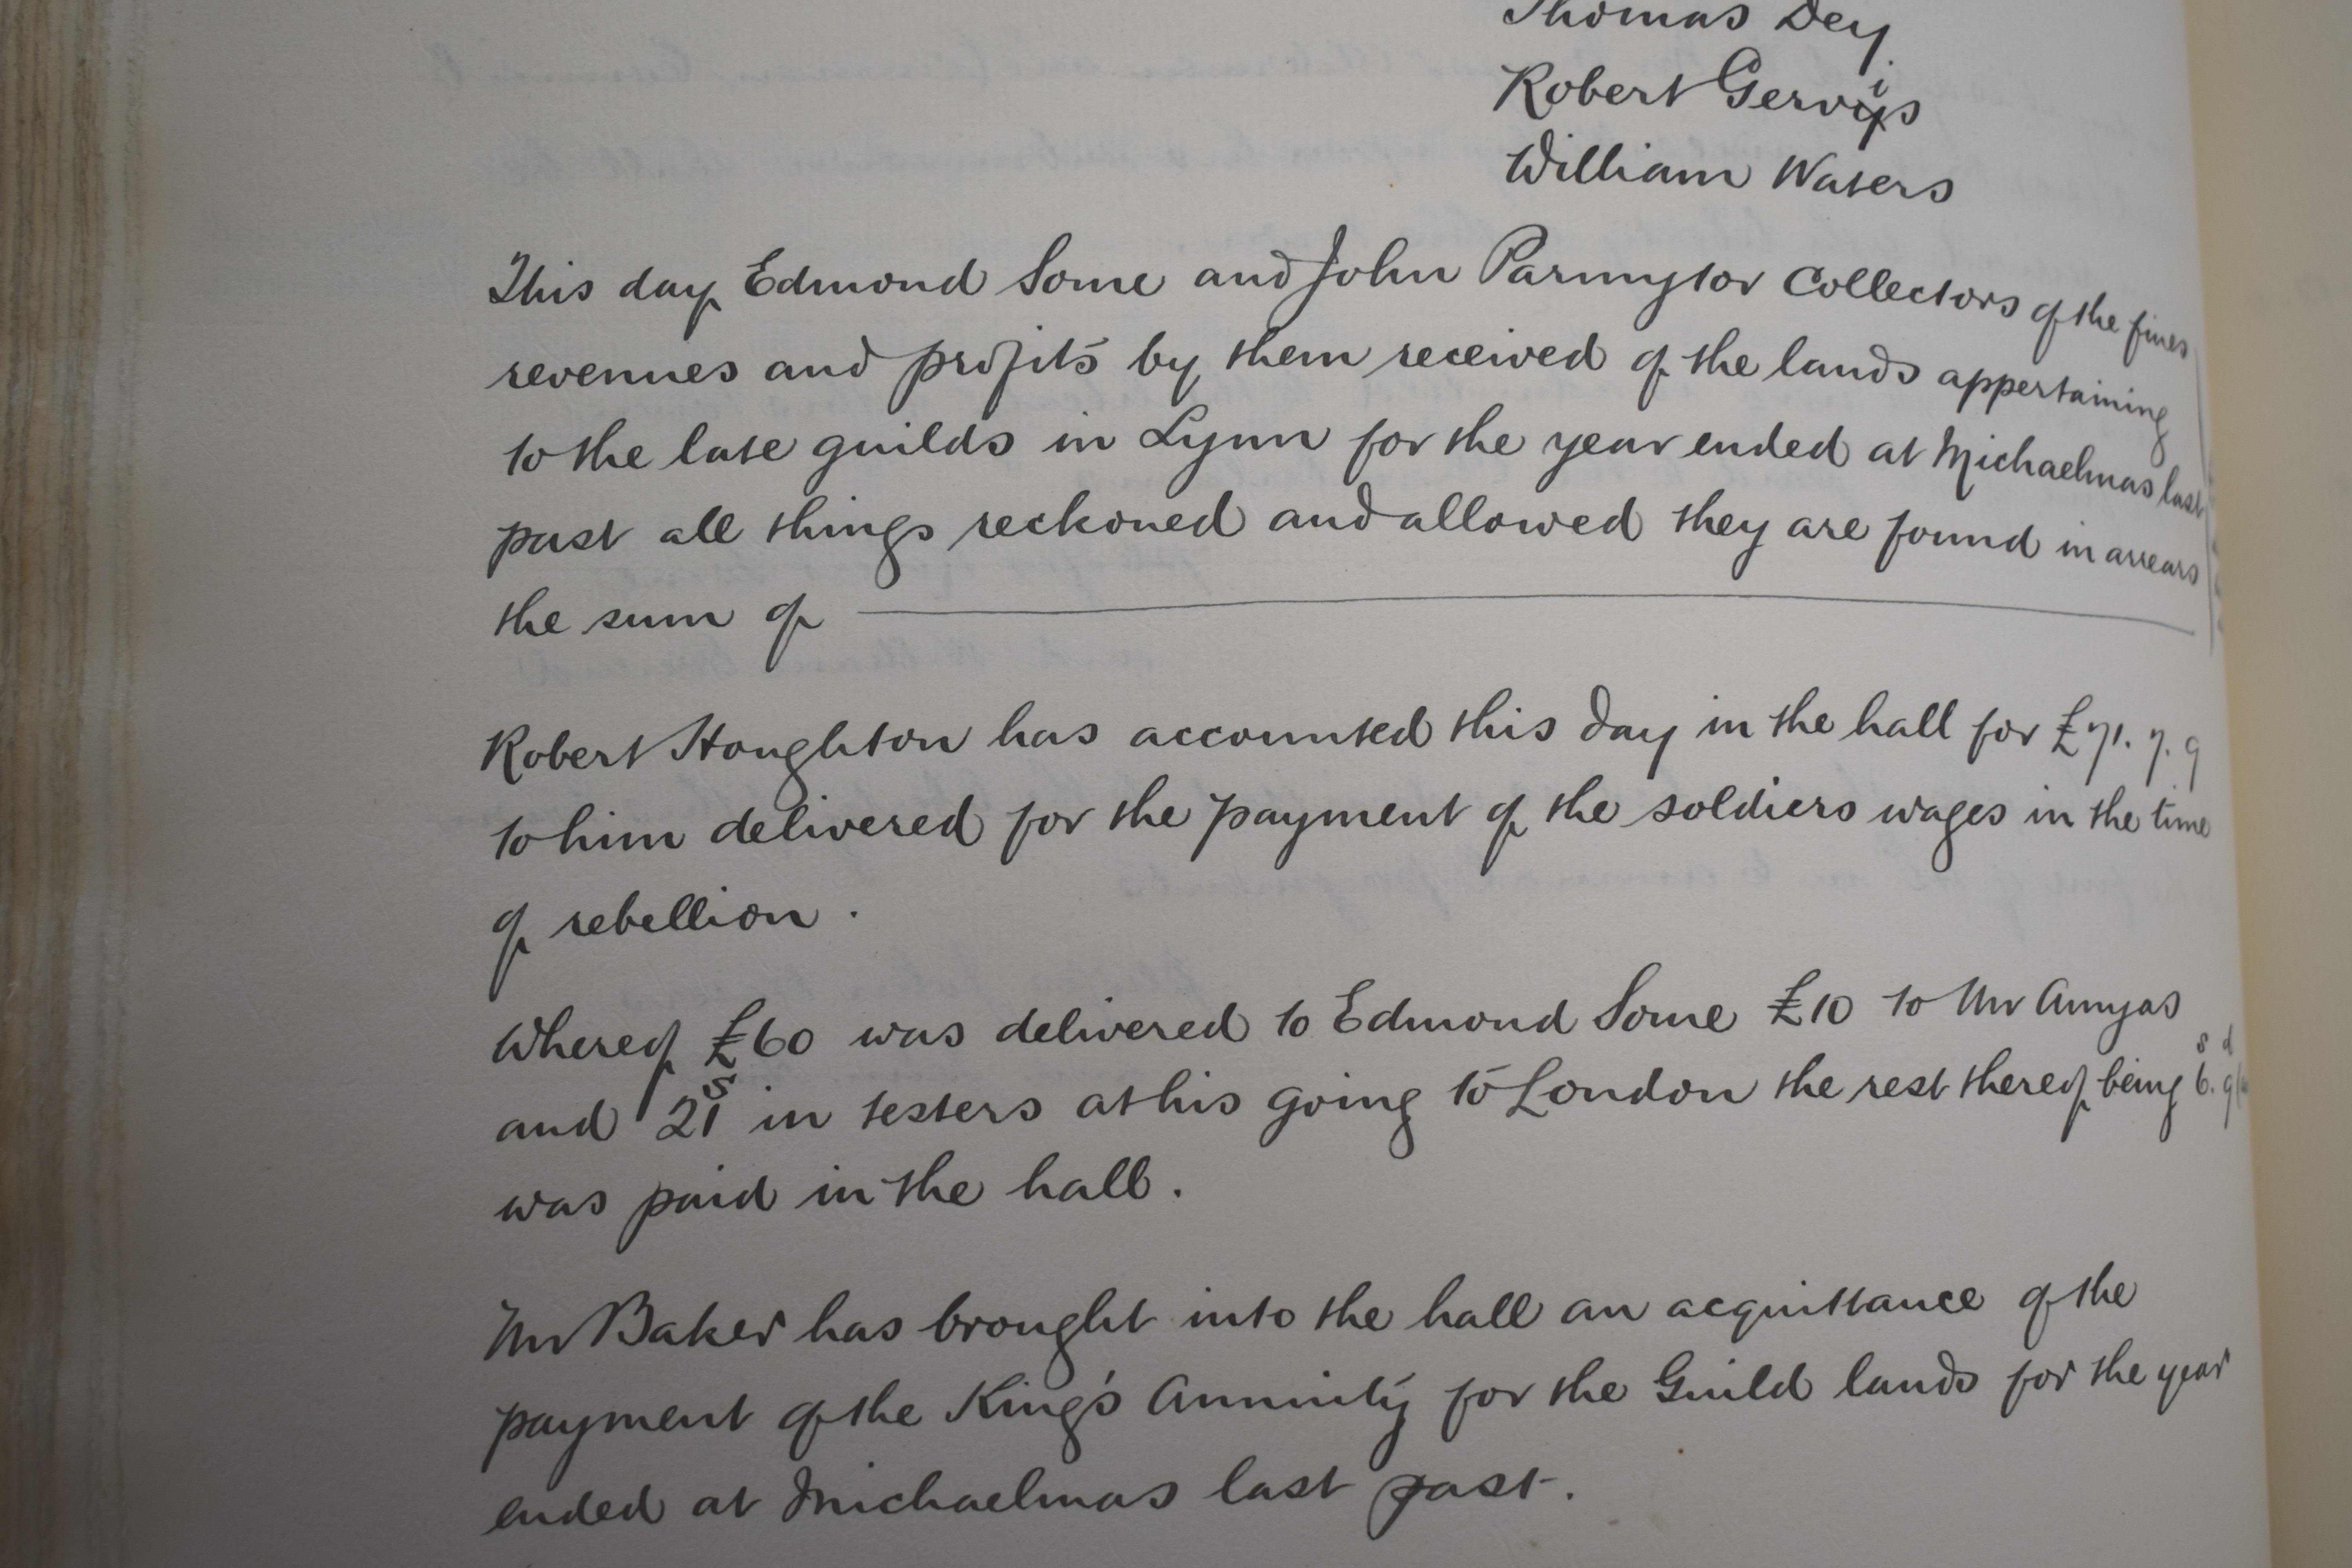 Thomas Dey
Robert Gervis
William Waters
This day Edmond Some and John Parmytor Collectors of the fines
revenues and profits by them received of the lands appertaining
to the late guilds in Lynn for the year ended at Michaelmas last
past all things reckoned and allowed they are found in arrears
the sum of
Robert Houghton has accounted this day in the hall for £71. 7. 9
to him delivered for the payment of the soldiers wages in the time
of rebellion.
Whereof £60 was delivered to Edmond Some £10 to Mr Amyas
and 21s in testers at his going to London the rest thereof being 6s. 9d
was paid in the hall.
Mr Baker has brought into the hall an acquittance of the
payment of the King's Annuity for the Guild lands for the year
ended at Michaelmas last past.